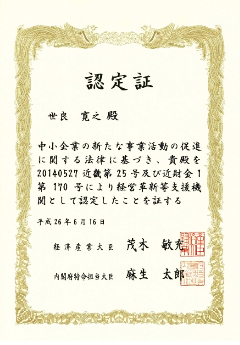 認定証
世良 寛之 殿
中小企業の新たな事業活動の促進
に関する法律に基づき、貴殿を
20140527近畿第25号及び近財金1
第170号により経営革新等支援機
関として認定したことを証する
平成26年6月16日
経済産業大臣 茂木 敏充
内閣府特命担当大臣 麻生 太郎